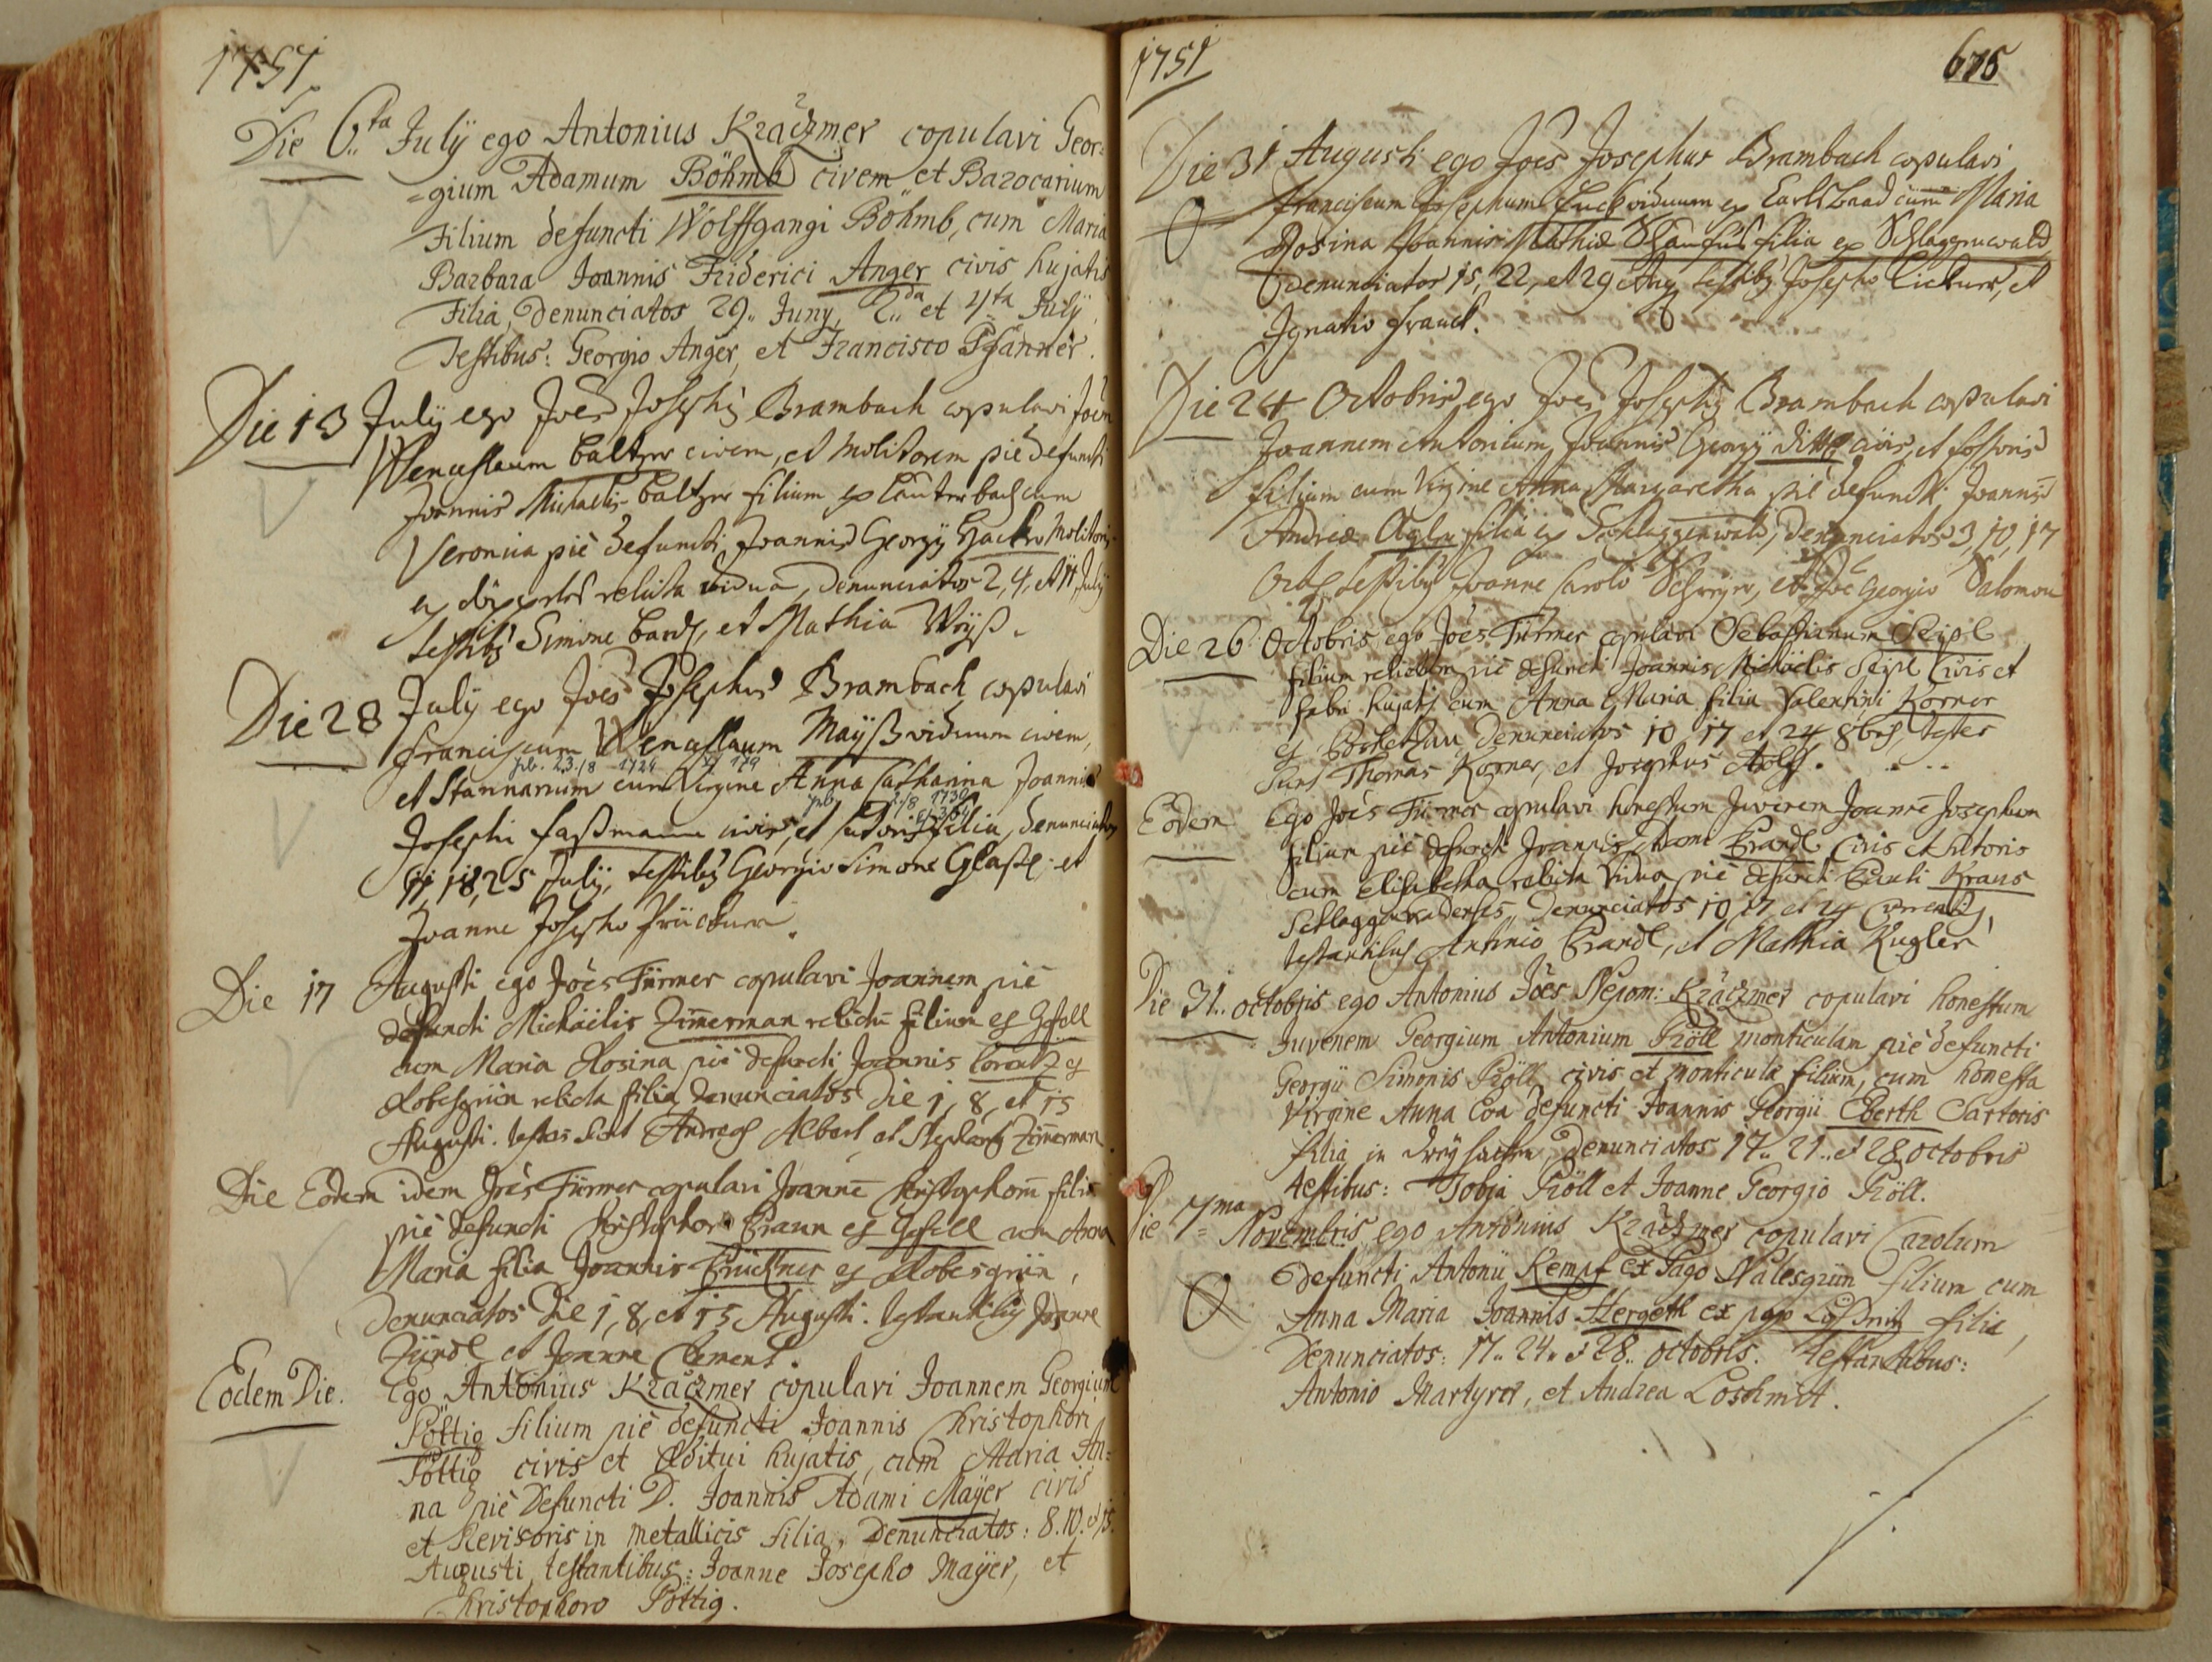 1751
Die 6.ta July ego Antonius Kraczmer copulavi Geor=
=gium Adamum Böhmb civem et Barocarium
Filium defuncti Wolffgangi Böhmb, cum Maria
Barbara Joannis Friderici Anger civis hujatis
Filia, denunciatos 29.. Juny, 2.da et 4ta July,
Testibus: Georgio Anger, et Francisco Pfanner.
Die 13 July ego Joēs Josephq Brambach copulavi Joēm
Wenceslaum Baltzer civem, et Molitorem piè defuncti
Joannis Michaelis Baltzer filium ex Lauterbach cum
Veronica piè defuncti Joannis Georgij Molitoris
relicta vidua, denunciatos 2, 4, et 11 July
testibq Simone et Mathia Weyß.
Die 28 July ego Joēs Josephus Brambach copulavi
Franciscum Wenceslaum Mayß viduum civem,
et Stannarium cum Virgine Anna Catharina Joannis
Josephi Faßmann civis, et sutoris filia, denunciatos
11, 18, 25 July, testibq Georgio Simone Glaßl, et
Joanne Josepho
Die 17 Augusti ego Joēs Fürmer copulavi Joannem piè
defuncti Michaëlis Zimmerman relictū filium ex Gfell
cum Maria Rosina piè defuncti Joannis Lorentz ex
Robesgrün relicta filia denunciatos Die 1, 8, et 15
Augusti. testes sunt Andreas Albert, et Zimerman.
Die Eodem idem Joēs Fürmer copulavi Joannē Christophorū filiū
piè defuncti Christophori Braun ex Gfell cum Anna
Maria filia Joannis Brückner ex Robesgrün,
Denunciatos Die 1, 8, et 15 Augusti. testantibq Joanne
et Joanne Clement.
Eodem Die. Ego Antonius Kraczmer copulavi Joannem Georgium
Pöttig filium piè defuncti Joannis Christophori
Pöttig civis et Æditui hujatis, cum Maria An=
na piè Defuncti D. Joannis Adami Mayer civis
et Revisoris in metallicis filia, Denunciatos: 8. 10. et 15.
Augusti, testantibus: Joanne Josepho Mayer, et
Christophoro Pöttig.
1751
675
Die 31 Augusti ego Joēs Josephus Brambach copulavi
Franciscum Josephum viduum ex Carlsbaad cum Maria
Rosina Joannis Mathiæ filia ex Schlaggenwald
denunciatos 15, 22, et 29 Aug testibq Josepho et
Ignatio Franck.
Die 24 Octobris ego Joēs Josephq Brambach copulavi
Joannem Antonium Joannis Georgij civis, et
filium cum Virgine Anna Margaretha piè defuncti Joannis
Andreæ filia ex Schlaggenwald, denunciatos 3, 10, 17
testibq Joanne Carolo et Joē Georgio Salomon
Die 26. Octobris ego Joēs Fürmer copulavi Sebastianum Seipl
filium relictum piè defuncti Joannis Michaëlis Seipl Civis et
fabri hujatis cum Anna Maria filia Valentini Korner
ex denunciatos 10 17 et 24 8bris, testes
sunt Thomas Korner, et Josephus Adolff.
Eodem Ego Joēs Fürmer copulavi honestum Juvenem Joannē Josephum
filium piè defuncti Joannis Adami Brandl Civis et sutoris
cum Elisabetha relicta Vidua piè defuncti Pauli Kraus
denunciatos 10 17 et 24 currentis,
testantibus Antonio Brandl, et Mathia Kugler
Die 31.. octobris ego Antonius Joēs Nepom: Kraczmer copulavi honestum
Juvenem Georgium Antonium Pröll monticulam piè defuncti
Georgii Simonis Pröll civis et monticulæ filium, cum honesta
Virgine Anna Eva defuncti Joannis Georgii Eberth Sartoris
filia in denunciatos 17.. 21.. et 28 octobris
testibus: Tobia Pröll et Joanne Georgio Pröll.
Die 7ma Novembris ego Antonius Kraczmer copulavi Carolum
defuncti Antonii Kempf ex Pago Nalesgrün filium cum
Anna Maria Joannis Hergeth ex pago filia,
Denunciatos: 17.. 24.. et 28.. octobris. testantibus:
Antonio Martyrer, et Andrea Loschmidt.